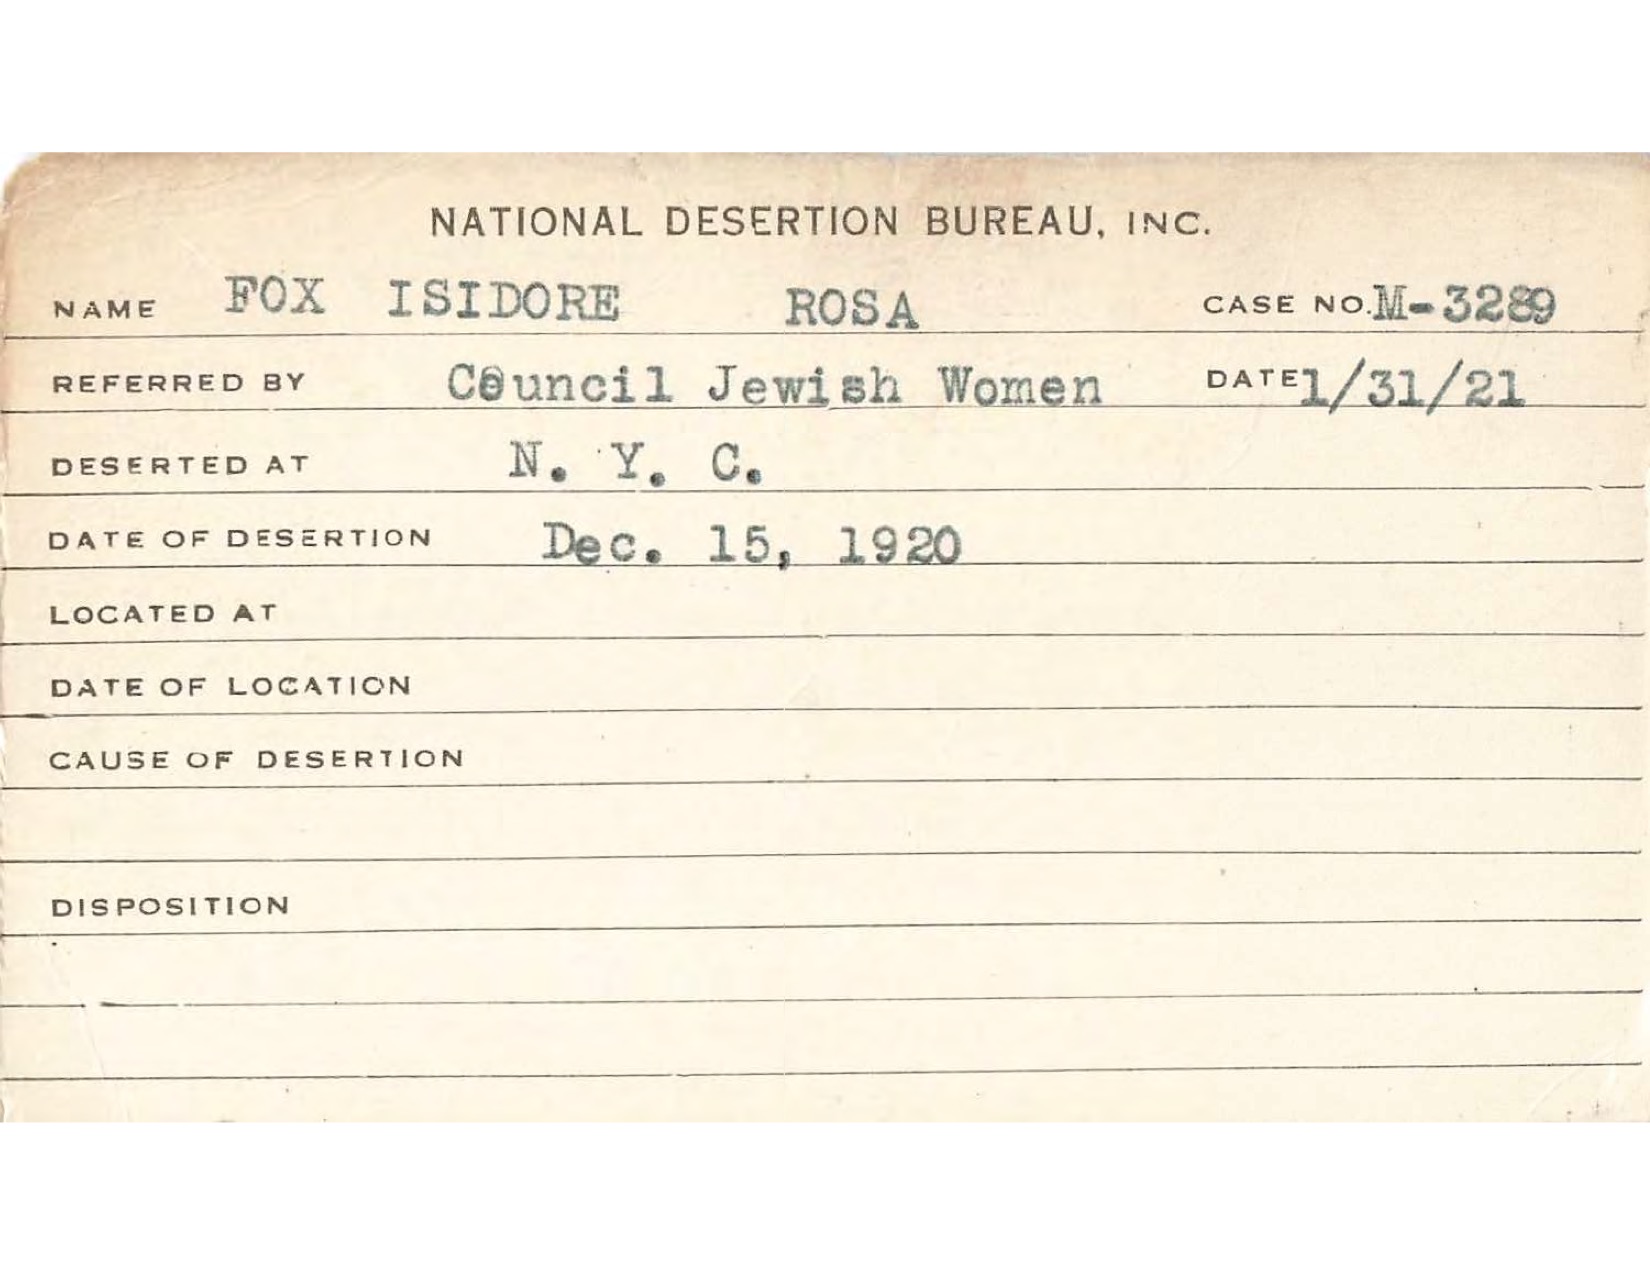 NATIONAL DESERTION BUREAU, INC.
NAME FOX ISIDORE ROSA CASE NO. M-3289
REFERRED BY Council Jewish Women DATE 1/31/21
DESERTED AT N. Y. C.
DATE OF DESERTION Dec. 15, 1920
LOCATED AT
DATE OF LOCATION
CAUSE OF DESERTION
DISPOSITION